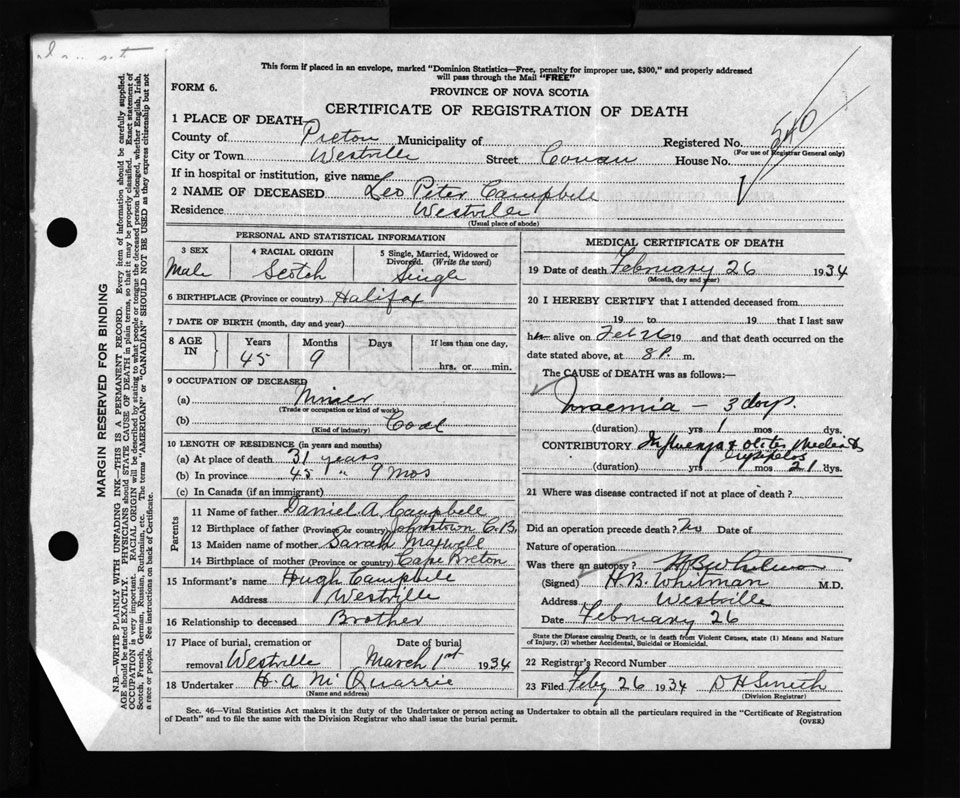 This form if placed in an envelope, marked "Dominion Statistics—Free, penalty for improper use, $300," and properly addressed
will pass through the Mail "FREE"
FORM 6.
PROVINCE OF NOVA SCOTIA
CERTIFICATE OF REGISTRATION OF DEATH
1 PLACE OF DEATH—
County of Pictou Municipality of Registered No. 540
(For use of Registrar General only)
City or Town Westville Street Cowan House No.
If in hospital or institution, give name
2 NAME OF DECEASED Leo Peter Campbell
Residence Westville
(Usual place of abode)
PERSONAL AND STATISTICAL INFORMATION
3 SEX Male
4 RACIAL ORIGIN Scotch
5 Single, Married, Widowed or Divorced. (Write the word) Single
6 BIRTHPLACE (Province or country) Halifax
7 DATE OF BIRTH (month, day and year)
8 AGE IN Years 45 Months 9 Days If less than one day, hrs. or min.
9 OCCUPATION OF DECEASED
(a) Miner
(Trade or occupation or kind of work)
(b) Coal
(Kind of industry)
10 LENGTH OF RESIDENCE (in years and months)
(a) At place of death 31 years
(b) In province 45 " 9 mos
(c) In Canada (if an immigrant)
Parents
11 Name of father Daniel A. Campbell
12 Birthplace of father (Province or country) Johnstown C.B.
13 Maiden name of mother Sarah Maxwell
14 Birthplace of mother (Province or country) Cape Breton
15 Informant's name Hugh Campbell
Address Westville
16 Relationship to deceased Brother
17 Place of burial, cremation or removal Westville
Date of burial March 1st 1934
18 Undertaker H. A. McQuarrie
(Name and address)
MEDICAL CERTIFICATE OF DEATH
19 Date of death February 26 1934
(Month, day and year)
20 I HEREBY CERTIFY that I attended deceased from
19 to 19 that I last saw
him alive on Feb 26 19 and that death occurred on the
date stated above, at 8 P. m.
The CAUSE OF DEATH was as follows:—
Uraemia — 3 days.
(duration) yrs 1 mos dys.
CONTRIBUTORY Influenza & Otitis Media &
Erysipelas
(duration) yrs mos 21 dys.
21 Where was disease contracted if not at place of death?
Did an operation precede death? No Date of
Nature of operation
Was there an autopsy? H B Whitman
(Signed) H.B. Whitman M.D.
Address Westville
Date February 26
State the Disease causing Death, or in death from Violent Causes, state (1) Means and Nature
of Injury, (2) whether Accidental, Suicidal or Homicidal.
22 Registrar's Record Number
23 Filed Feby 26 1934 D H Smith
(Division Registrar)
Sec. 46—Vital Statistics Act makes it the duty of the Undertaker or person acting as Undertaker to obtain all the particulars required in the "Certificate of Registration
of Death" and to file the same with the Division Registrar who shall issue the burial permit.
(OVER)
MARGIN RESERVED FOR BINDING
N.B.—WRITE PLAINLY WITH UNFADING INK—THIS IS A PERMANENT RECORD. Every item of information should be carefully supplied.
AGE should be stated EXACTLY. PHYSICIANS should STATE CAUSE OF DEATH in plain terms, so that it may be properly classified. Exact statement of
OCCUPATION is very important. RACIAL ORIGIN will be described by stating to what people or tongue the deceased person belonged, whether English, Irish,
Scotch, French, German, Russian, Ruthenian, etc. The terms "AMERICAN" or "CANADIAN" SHOULD NOT BE USED as they express citizenship but not
a race or people. See instructions on back of Certificate.